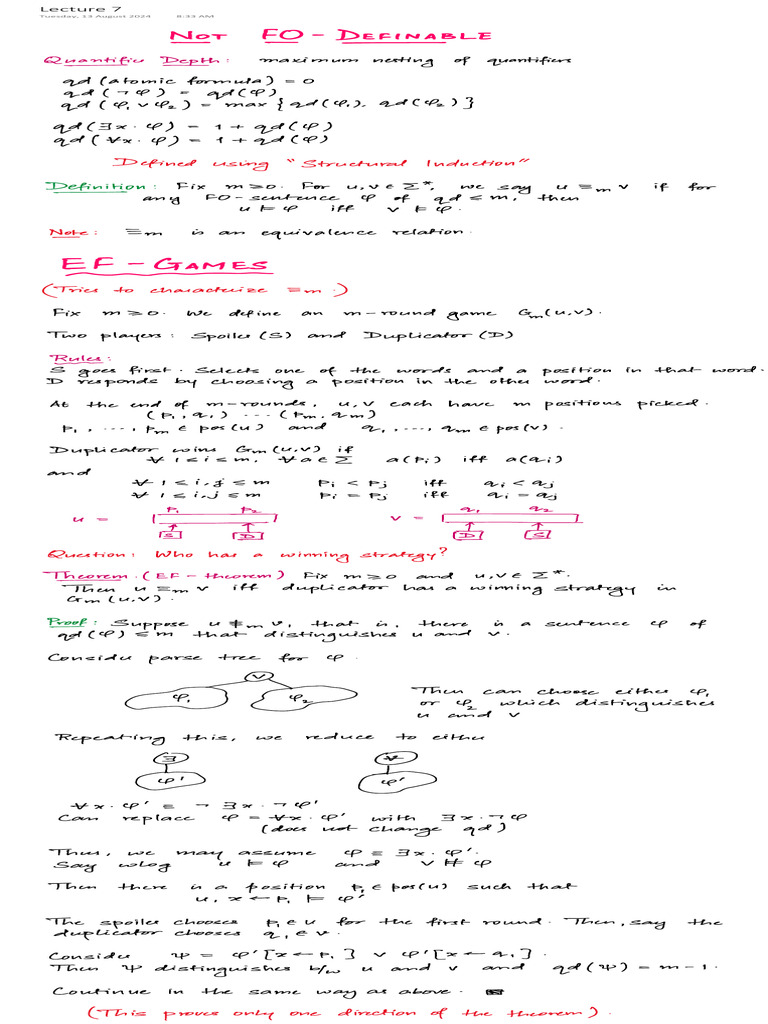 Lecture 7
Tuesday, 13 August 2024 8:33 AM
NOT FO-DEFINABLE
Quantifier Depth: maximum nesting of quantifiers
qd (atomic formula) = 0
qd (¬φ) = qd(φ)
qd (φ₁ ∨ φ₂) = max { qd(φ₁), qd(φ₂) }
qd (∃x. φ) = 1 + qd(φ)
qd (∀x. φ) = 1 + qd(φ)
Defined using "Structural Induction"
Definition: Fix m ≥ 0. For u, v ∈ Σ*, we say u ≡m v if for
any FO-sentence φ of qd ≤ m, then
u ⊨ φ iff v ⊨ φ.
Note: ≡m is an equivalence relation.
EF-GAMES
(Tries to characterize ≡m.)
Fix m ≥ 0. We define an m-round game Gm(u,v).
Two players: Spoiler (S) and Duplicator (D)
Rules:
S goes first. Selects one of the words and a position in that word.
D responds by choosing a position in the other word.
At the end of m-rounds, u, v each have m positions picked.
(p₁, q₁) ... (pm, qm)
p₁, ..., pm ∈ pos(u) and q₁, ..., qm ∈ pos(v).
Duplicator wins Gm(u,v) if
∀ 1 ≤ i ≤ m, ∀a ∈ Σ a(pi) iff a(qi)
and
∀ 1 ≤ i, j ≤ m pi < pj iff qi < qj
∀ 1 ≤ i, j ≤ m pi = pj iff qi = qj
p₁ p₂ q₁ q₂
u = v =
S D D S
Question: Who has a winning strategy?
Theorem. (EF-theorem) Fix m ≥ 0 and u, v ∈ Σ*.
Then u ≡m v iff duplicator has a winning strategy in
Gm(u,v).
Proof: Suppose u ≢m v, that is, there is a sentence φ of
qd(φ) ≤ m that distinguishes u and v.
Consider parse tree for φ.
∨
φ₁ φ₂
Then can choose either φ₁
or φ₂ which distinguishes
u and v
Repeating this, we reduce to either
∃ ∀
φ' φ'
∀x. φ' ≡ ¬∃x. ¬φ'
Can replace φ = ∀x. φ' with ∃x. ¬φ
(does not change qd)
Thus, we may assume φ ≡ ∃x. φ'.
Say wlog u ⊨ φ and v ⊭ φ
Then there is a position p₁ ∈ pos(u) such that
u, x ← p₁ ⊨ φ'
The spoiler chooses p₁ ∈ u for the first round. Then, say the
duplicator chooses q₁ ∈ v.
Consider ψ = φ'[x ← p₁] ∨ φ'[x ← q₁].
Then ψ distinguishes b/w u and v and qd(ψ) = m-1.
Continue in the same way as above.
(This proves only one direction of the theorem).